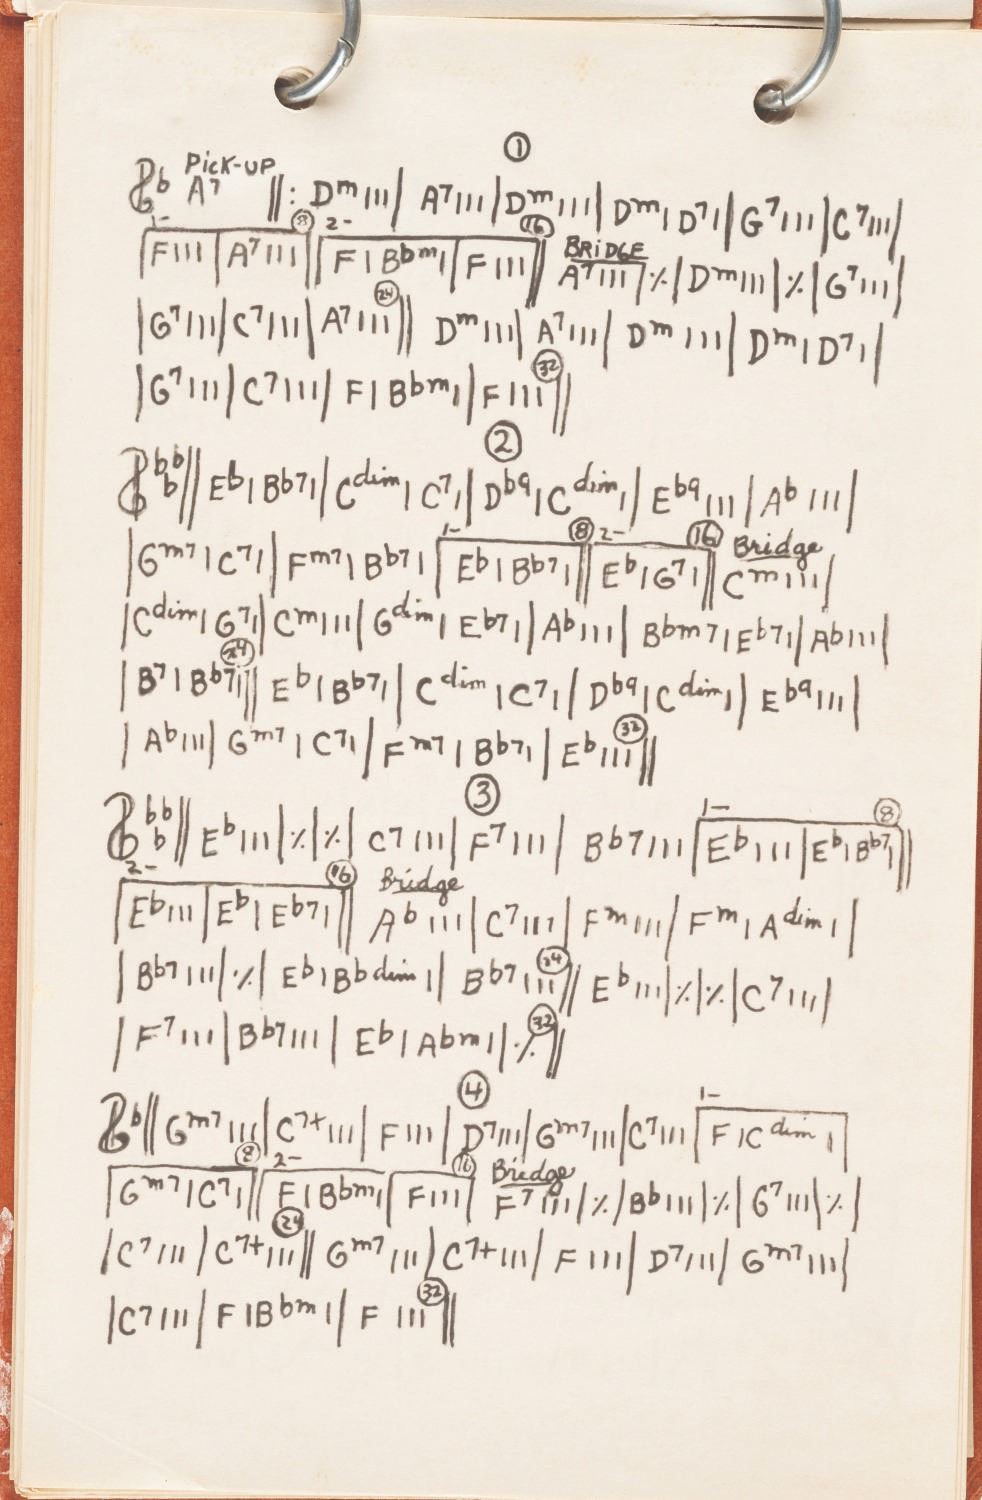 ①
♭ PicK-UP A7 ||: Dm ||| | A7 ||| | Dm ||| | Dm | D7 | | G7 ||| | C7 ||| |
1- F ||| | A7 ||| ⑧ || 2- F | Bbm | | F ||| ⑯ || BRiDGE A7 ||| | ٪ | Dm ||| | ٪ | G7 ||| |
| G7 ||| | C7 ||| | A7 ||| ㉔ || Dm ||| | A7 ||| | Dm ||| | Dm | D7 | |
| G7 ||| | C7 ||| | F | Bbm | | F ||| ㉜ ||
②
♭♭♭ || Eb | Bb7 | | Cdim | C7 | | Db9 | Cdim | | Eb9 ||| | Ab ||| |
| Gm7 | C7 | | Fm7 | Bb7 | | 1- Eb | Bb7 | ⑧ || 2- Eb | G7 | ⑯ || Bridge Cm ||| |
| Cdim | G7 | | Cm ||| | Gdim | Eb7 | | Ab ||| | Bbm7 | Eb7 | | Ab ||| |
| B7 | Bb7 | ㉔ || Eb | Bb7 | | Cdim | C7 | | Db9 | Cdim | | Eb9 ||| |
| Ab ||| | Gm7 | C7 | | Fm7 | Bb7 | | Eb ||| ㉜ ||
③
♭♭♭ || Eb ||| | ٪ | ٪ | C7 ||| | F7 ||| | Bb7 ||| | 1- Eb ||| | Eb | Bb7 | ⑧ ||
2- Eb ||| | Eb | Eb7 | ⑯ || Bridge Ab ||| | C7 ||| | Fm ||| | Fm | Adim | |
| Bb7 ||| | ٪ | Eb | Bbdim | | Bb7 ||| ㉔ || Eb ||| | ٪ | ٪ | C7 ||| |
| F7 ||| | Bb7 ||| | Eb | Abm | | ٪ ㉜ ||
④
♭ || Gm7 ||| | C7+ ||| | F ||| | D7 ||| | Gm7 ||| | C7 ||| | 1- F | Cdim | |
| Gm7 | C7 | ⑧ || 2- F | Bbm | | F ||| ⑯ | Bridge F7 ||| | ٪ | Bb ||| | ٪ | G7 ||| | ٪ |
| C7 ||| | C7+ ||| ㉔ || Gm7 ||| | C7+ ||| | F ||| | D7 ||| | Gm7 ||| |
| C7 ||| | F | Bbm | | F ||| ㉜ ||